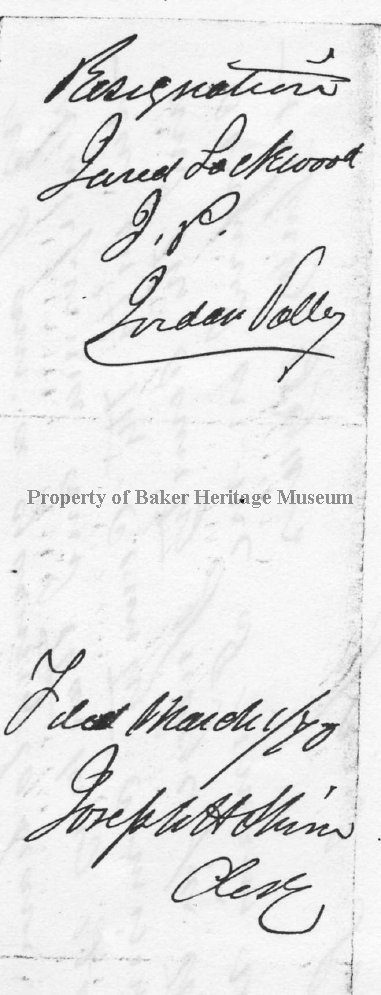 Resignation
Jared Lockwood
J. P.
Jordan Valley
Property of Baker Heritage Museum
Filed March 1/70
Joseph H Shinn
Clerk